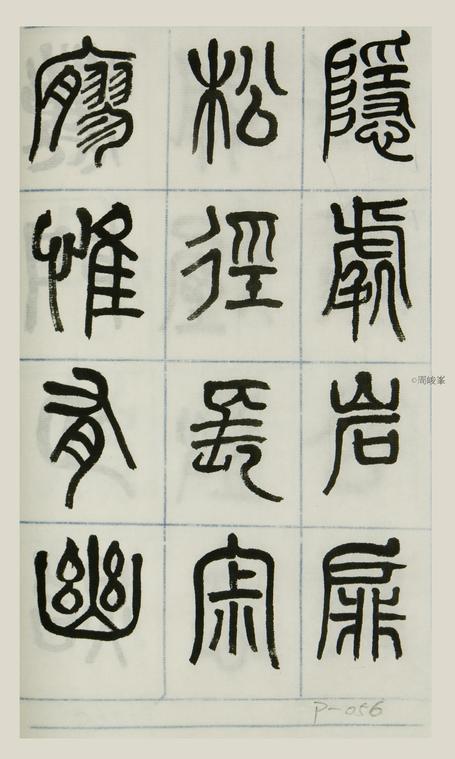 隱處岩扉
松徑長寂
寥惟有幽
©周峻峯
P-056